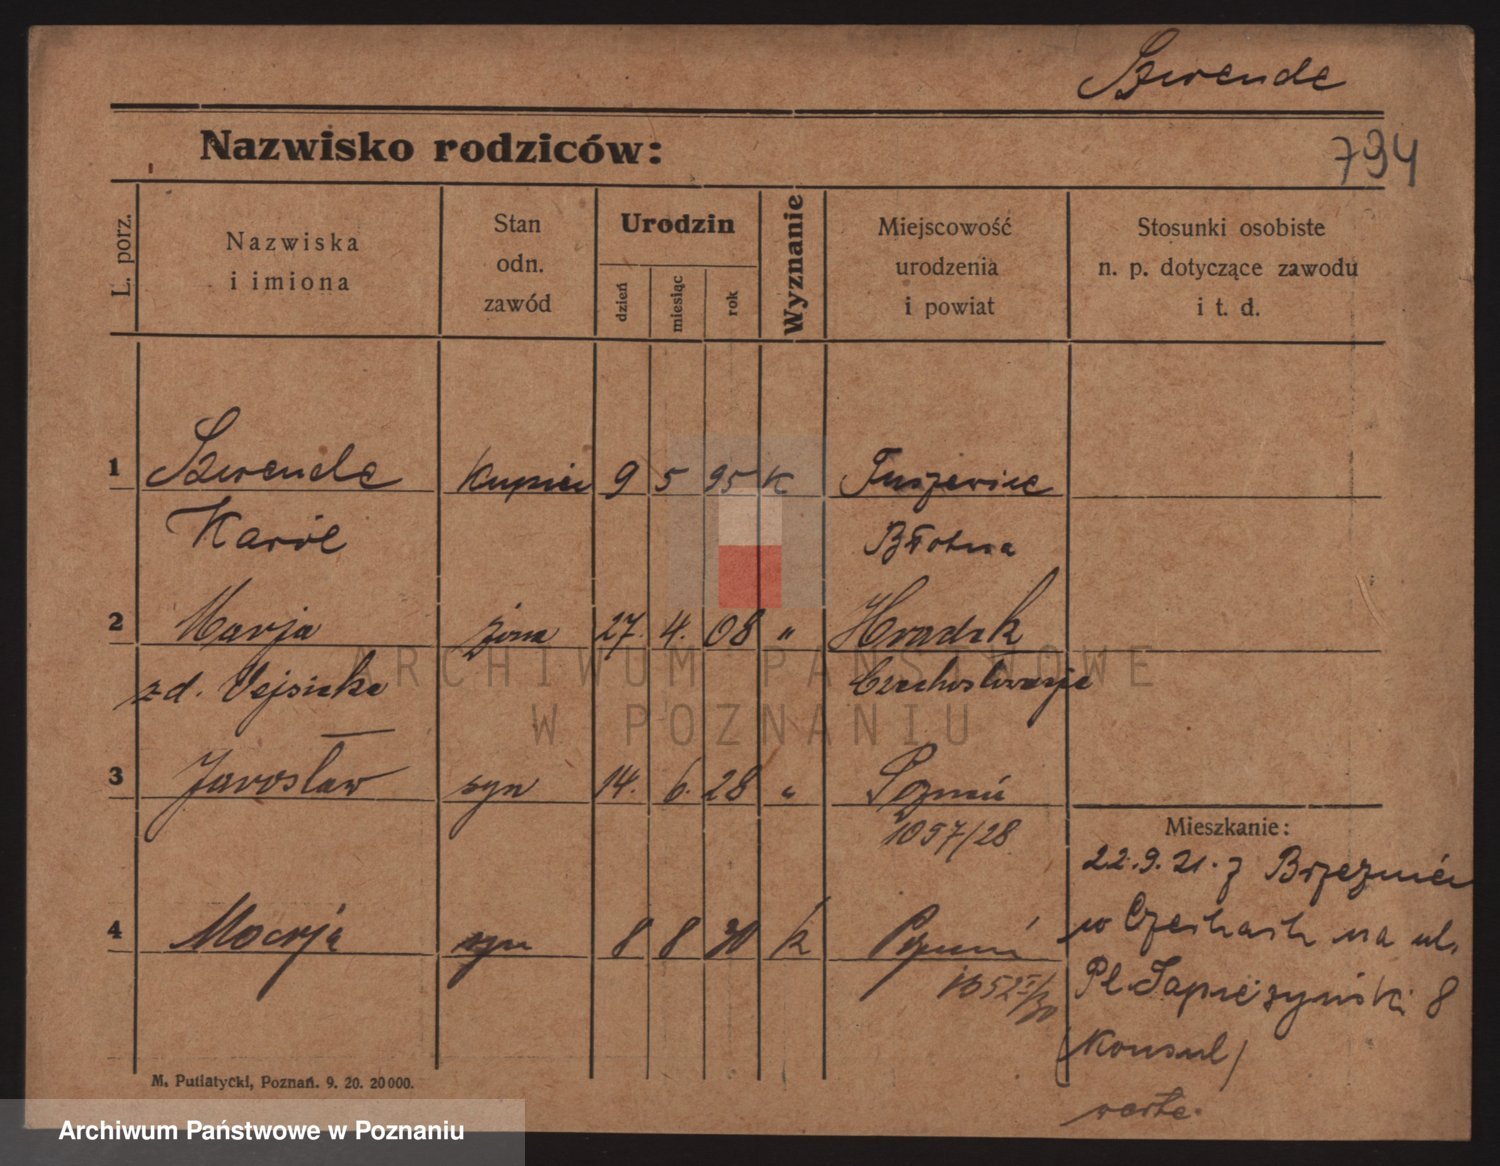 Szwende
Nazwisko rodziców:
794
L. porz.
Nazwiska
i imiona
Stan
odn.
zawód
Urodzin
dzień
miesiąc
rok
Wyznanie
Miejscowość
urodzenia
i powiat
Stosunki osobiste
n. p. dotyczące zawodu
i t. d.
1 Szwende kupiec 9 5 95 K
Karol Błotna
2 Marja żona 27. 4. 08 " Hradek
zd. Czechosłowacja
3 Jarosław syn 14. 6. 28 " Poznań
1057/28
Mieszkanie:
22.9.21. z
4 8 8 30 k Poznań
w Czechach na ul.
Pl. Sapieżyński 8
(Konsul)
verte.
M. Putiatycki, Poznań. 9. 20. 20000.
ARCHIWUM PAŃSTWOWE
W POZNANIU
Archiwum Państwowe w Poznaniu